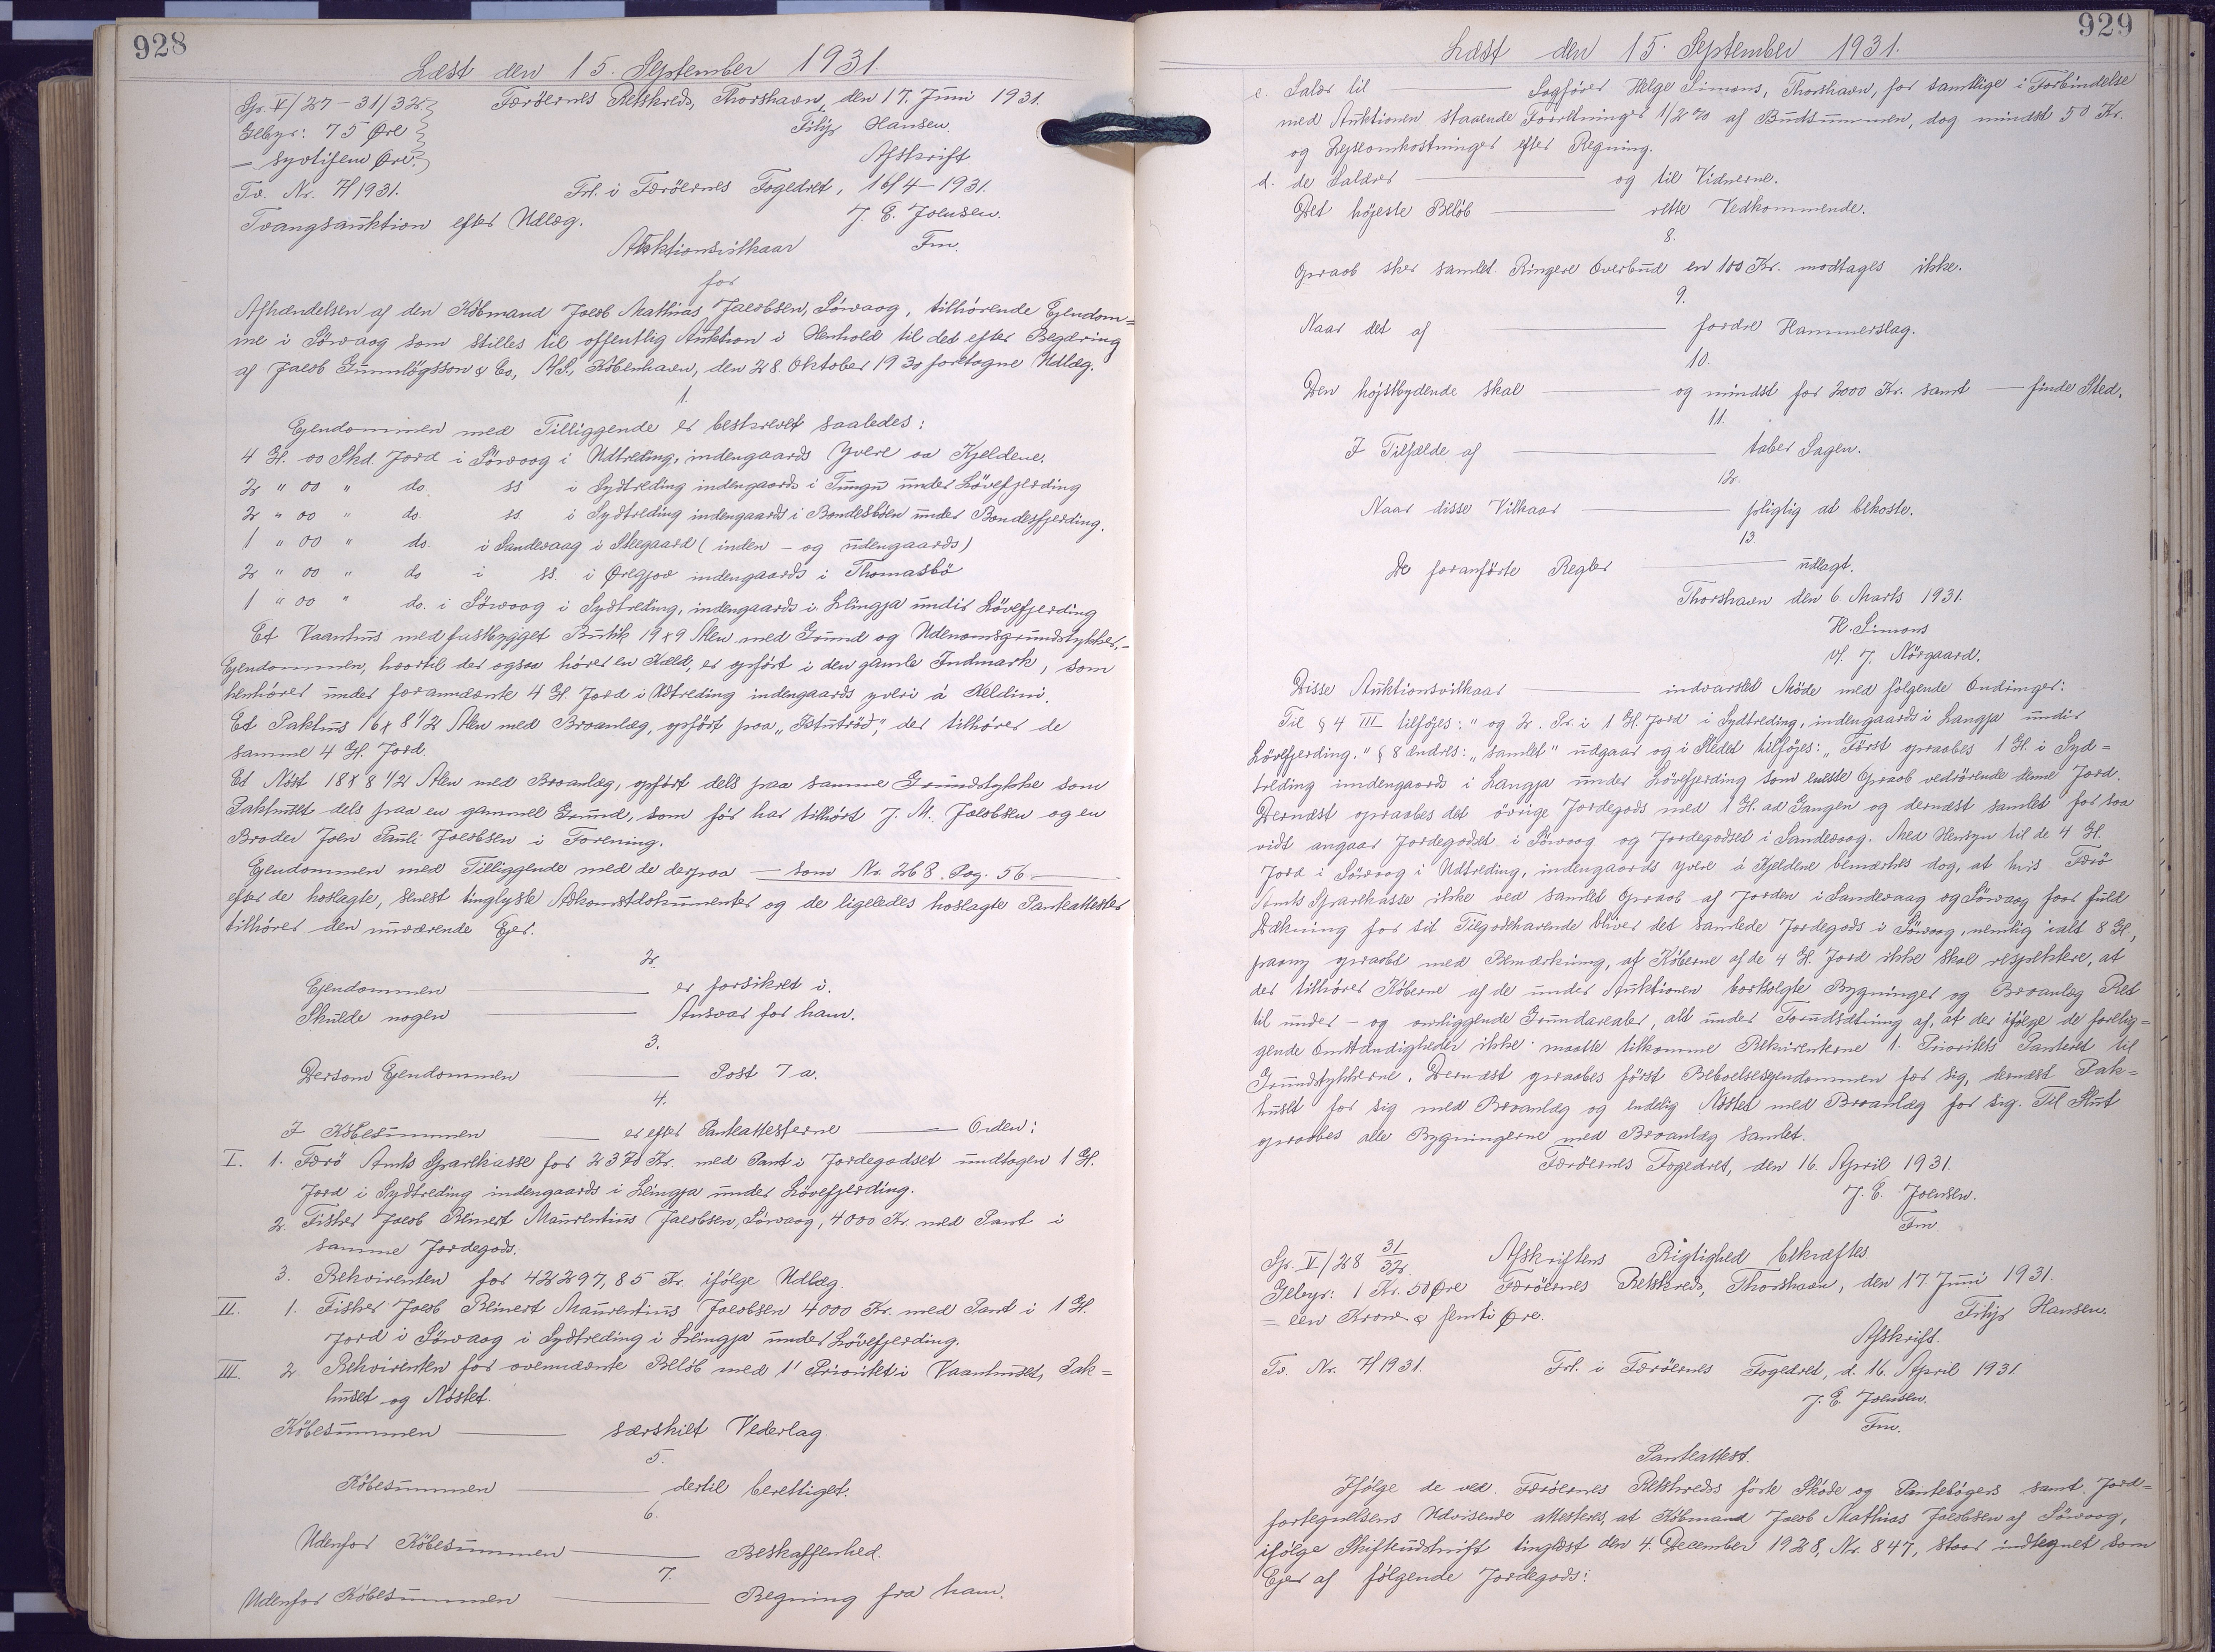 928
Læst den 15. September 1931.
Gr. V/27-31/32.
Færöernes Retskreds, Thorshavn, den 17. Juni 1931.
Gebyr: 75 Øre
Filip Hansen.
— syvtifem Øre.
Afskrift.
Tv. Nr. 7/1931.
Frl. i Færöernes Fogedret, 16/4-1931.
Tvangsauktion efter Udlæg.
J. E. Joensen.
Auktionsvilkaar
Fm.
for
Afhændelsen af den Købmand Jacob Mathias Jacobsen, Sörvaag, tilhörende Ejendom=
me i Sörvaag som stilles til offentlig Auktion i Henhold til det efter Begæring
af Jacob Gunnlögsson & Co., A/S., København, den 28. Oktober 1930 foretagne Udlæg.
1.
Ejendommen med Tilliggende er beskrevet saaledes:
4 Gl. 00 Skd. Jord i Sörvaag i Udtreding, indengaards Yvere aa Kjeldene.
2 " 00 " do. ss i Sydtreding indengaards i Tungu under Lövefjerding
2 " 00 " do. ss. i Sydtreding indengaards i Bondesböen under Bondesfjerding.
1 " 00 " do. i Sandevaag i Steegaard (inden- og udengaards)
2 " 00 " do i ss. i Øregjov indengaards i Thomasbö
1 " 00 " do. i Sörvaag i Sydtreding, indengaards i Llingja undir Lövefjerding
Et Vaanhus med fastbygget Butik 19x9 Alen med Grund og Udenomsgrundstykker,-
Ejendommen, hvortil der ogsaa hörer en Kæld, er opfört i den gamle Indmark, som
henhörer under forannævnte 4 Gl. Jord i Udtreding indengaards yviri á Keldini.
Et Pakhus 16x8 1/2 Alen med Broanlæg, opfört paa "Stutröd", der tilhörer de
samme 4 Gl. Jord.
Et Nöst 18x8 1/2 Alen med Broanlæg, opfört dels paa samme Grundstykke som
Pakhuset dels paa en gammel Grund, som för har tilhört J. M. Jacobsen og en
Broder Joen Pauli Jacobsen i Forening.
Ejendommen med Tilliggende med de derpaa — som Nr. 268. Pag. 56 —
efter de hoslagte, senest tinglyste Adkomstdokumenter og de ligeledes hoslagte Panteattester
tilhörer den nuværende Ejer.
2.
Ejendommen — er forsikret i.
Skulde nogen — Ansvar for ham.
3.
Dersom Ejendommen — Post 7 a.
4.
I Köbesummen — er efter Panteattesterne — Orden:
I. 1. Færö Amts Sparekasse for 2370 Kr. med Pant i Jordegodset undtagen 1 Gl.
Jord i Sydtreding indengaards i Llingja under Lövefjerding.
2. Fisker Jacob Reinert Maurentius Jacobsen, Sörvaag, 4000 Kr. med Pant i
samme Jordegods.
3. Rekvirenten for 42297,85 Kr. ifölge Udlæg.
II. 1. Fisker Jacob Reinert Maurentius Jacobsen 4000 Kr. med Pant i 1 Gl.
Jord i Sörvaag i Sydtreding i Llingja under Lövefjerding.
III. 2. Rekvirenten for ovennævnte Belöb med 1' Prioritet i Vaanhuset, Pak=
huset og Nöstet.
Köbesummen — særskilt Vederlag.
5.
Köbesummen — dertil berettiget.
6.
Udenfor Köbesummen — Beskaffenhed.
7.
Udenfor Köbesummen — Regning fra ham.
929
Læst den 15. September 1931.
c. Salær til — Sagförer Helge Simons, Thorshavn, for samtlige i Forbindelse
med Auktionen staaende Forretninger 1/2 % af Budsummen, dog mindst 50 Kr.
og Rejseomkostninger efter Regning.
d. de Salærer — og til Vidnerne.
Det höjeste Belöb — rette Vedkommende.
8.
Opraab sker samlet. Ringere Overbud en 100 Kr. modtages ikke.
9.
Naar det af — fordre Hammerslag.
10.
Den höjstbydende skal — og mindst for 2000 Kr. samt — finde Sted.
11.
I Tilfælde af — taber Sagen.
12.
Naar disse Vilkaar — pligtig at bekoste.
13.
De foranförte Regler — udlagt.
Thorshavn den 6. Marts 1931.
H. Simons
v/. J. Nörgaard.
Disse Auktionsvilkaar — indvarslet Möde med fölgende Ændringer:
Til § 4 III tilföjes: "og 2. Pr. i 1 Gl. Jord i Sydtreding, indengaards i Langja undir
Lövefjerding." § 8 ændres: "samlet" udgaar og i Stedet tilföjes: "Först opraabes 1 Gl. i Syd=
treding indengaards i Langja under Lövefjerding som eneste Opraab vedrörende denne Jord.
Dernæst opraabes det övrige Jordegods med 1 Gl. ad Gangen og dernæst samlet for saa
vidt angaar Jordegodset i Sörvaag og Jordegodset i Sandevaag. Med Hensyn til de 4 Gl.
Jord i Sörvaag i Udtreding, indengaards yvere á Kjeldene bemærkes dog, at hvis Færö
Amts Sparekasse ikke ved samlet Opraab af Jorden i Sandevaag og Sörvaag faar fuld
Dækning for sit Tilgodehavende bliver det samlede Jordegods i Sörvaag, nemlig ialt 8 Gl.,
paany opraabt med Bemærkning, at Köberne af de 4 Gl. Jord ikke skal respektere, at
der tilhörer Köberne af de under Auktionen bortsolgte Bygninger og Broanlæg Ret
til under- og omliggende Grundarealer, alt under Forudsætning af, at der ifölge de forelig=
gende Omstændigheder ikke maatte tilkomme Rekvirenterne 1. Prioritets Panteret til
Grundstykkerne. Dernæst opraabes först Beboelsesejendommen for sig, dernæst Pak=
huset for sig med Broanlæg og endelig Nöstet med Broanlæg for sig. Til Slut
opraabes alle Bygningerne med Broanlæg samlet.
Færöernes Fogedret, den 16. April 1931.
J. E. Joensen.
Fm.
Gr. V/28 31/32.
Afskriftens Rigtighed bekræftes
Gebyr: 1 Kr. 50 Øre Færöernes Retskreds, Thorshavn, den 17. Juni 1931.
= een Krone & femti Øre.
Filip Hansen.
Afskrift.
Tv. Nr. 7/1931.
Frl. i Færöernes Fogedret, d. 16. April 1931.
J. E. Joensen.
Fm.
Panteattest.
Ifölge de ved Færöernes Retskreds förte Sköde og Pantebögers samt Jord=
fortegnelsens Udvisende attesteres, at Købmand Jacob Mathias Jacobsen af Sörvaag,
ifölge Skifteudskrift tinglæst den 4. December 1928, Nr. 847, staar indtegnet som
Ejer af fölgende Jordegods: